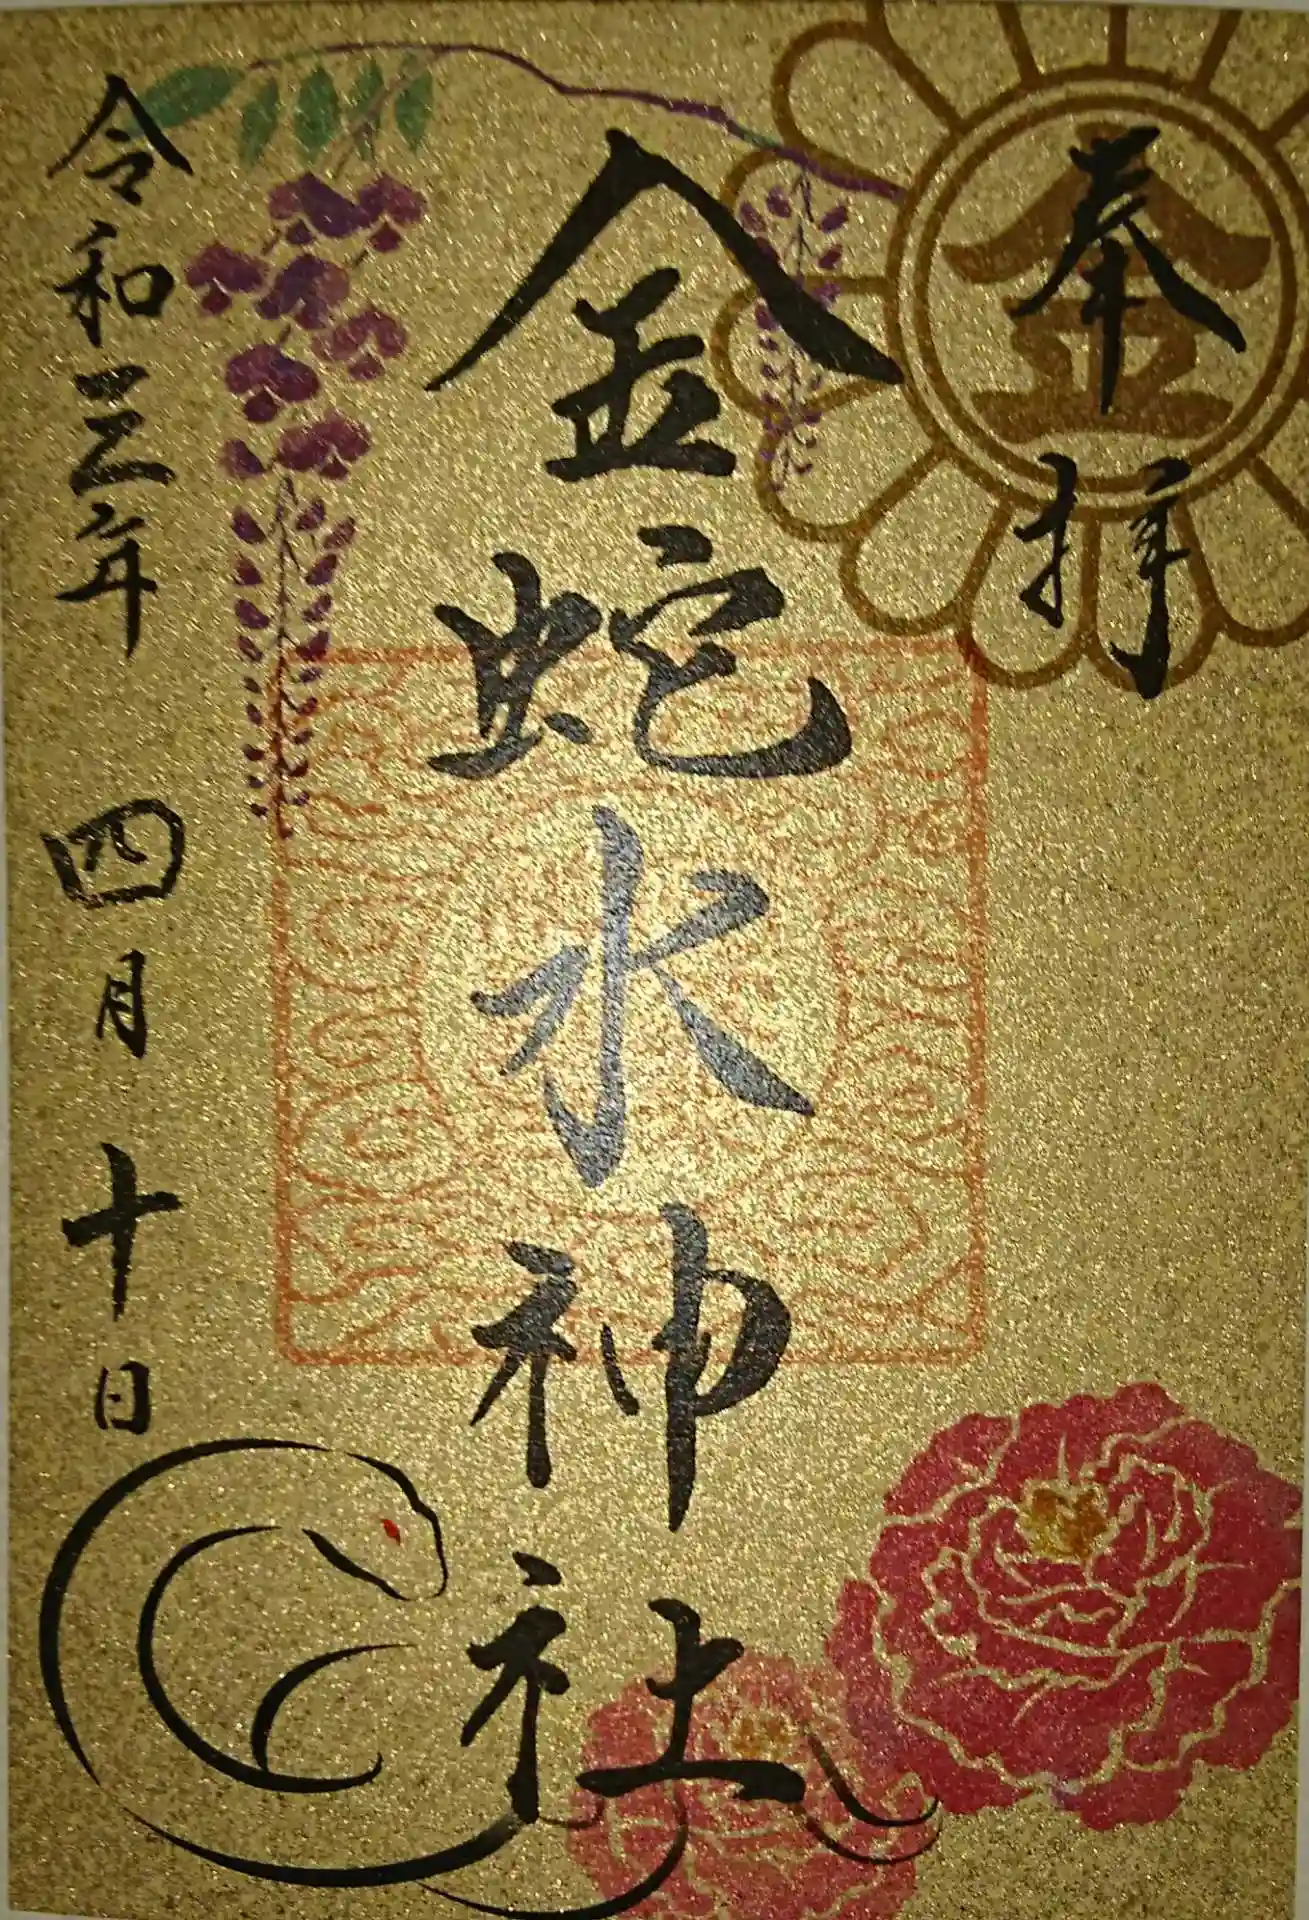 奉拝
金
金蛇水神社
令和三年 四月十日